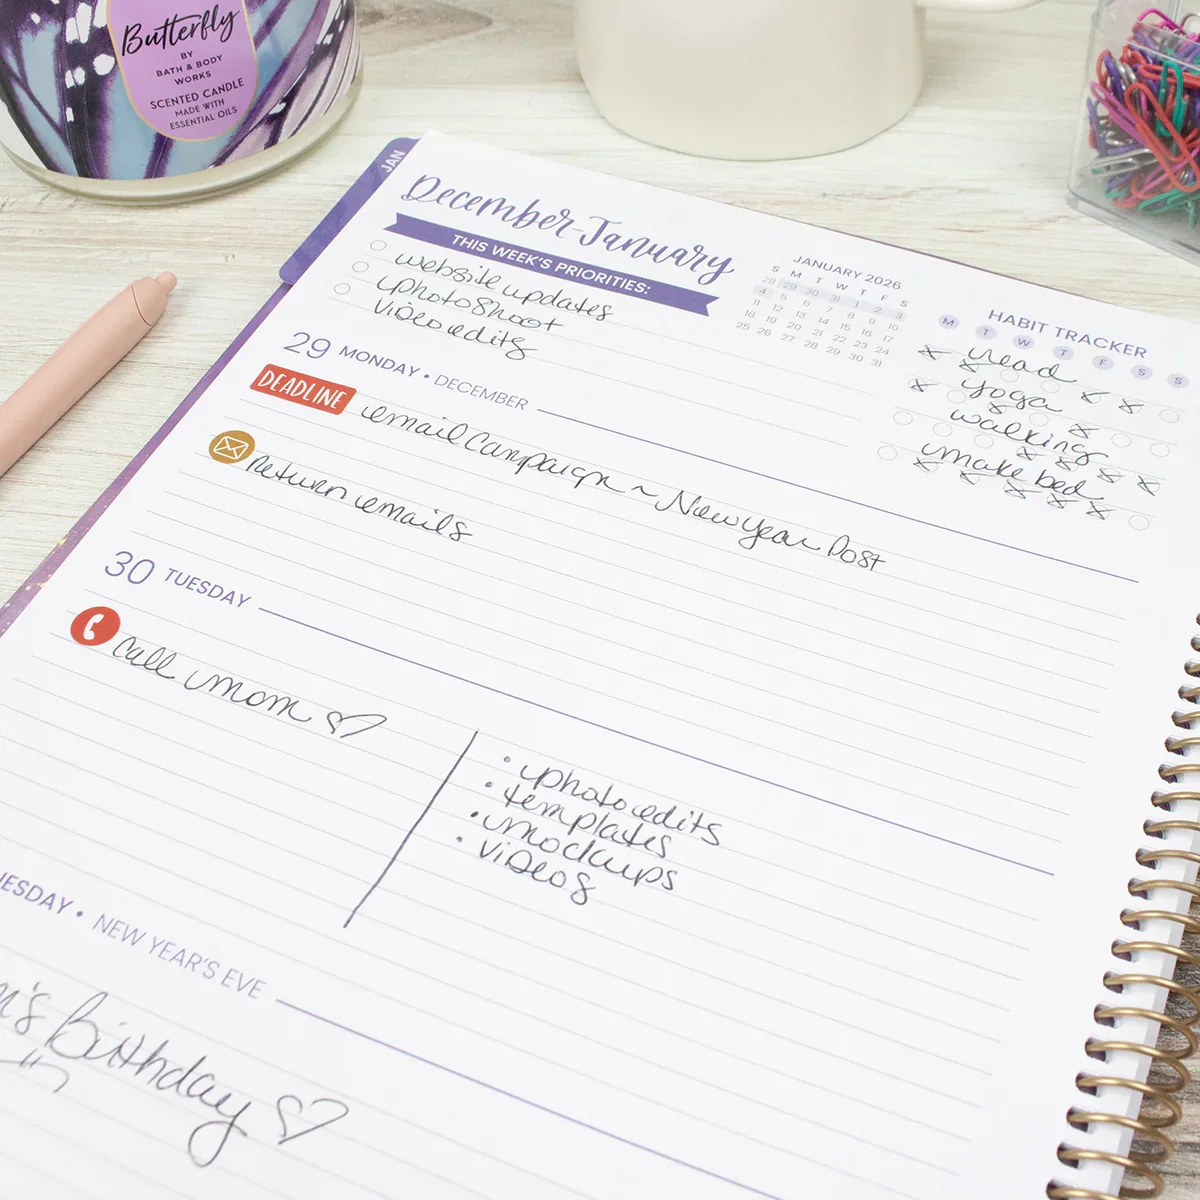 Butterfly
BY
BATH & BODY
WORKS
SCENTED CANDLE
MADE WITH
ESSENTIAL OILS
JAN
December-January
THIS WEEK'S PRIORITIES:
website updates
photoshoot
video edits
JANUARY 2026
S M T W T F S
28 29 30 31 1 2 3
4 5 6 7 8 9 10
11 12 13 14 15 16 17
18 19 20 21 22 23 24
25 26 27 28 29 30 31
HABIT TRACKER
M T W T F S S
read
yoga
walking
make bed
29 MONDAY • DECEMBER
DEADLINE email campaign ~ New Year Post
return emails
30 TUESDAY
call mom
• photo edits
• templates
• mockups
• videos
NESDAY • NEW YEAR'S EVE
m's Birthday